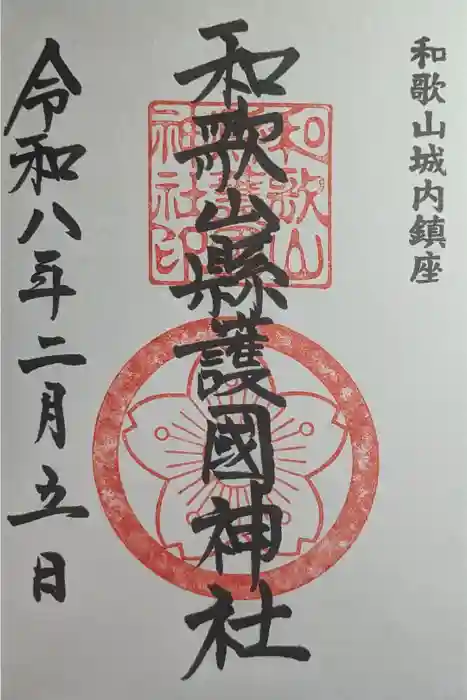 和歌山城内鎮座
和歌山縣護國神社
令和八年二月五日
和歌山
神社印